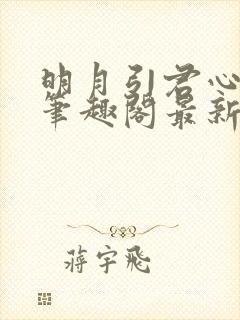 明月引君心
笔趣阁最新
蒋宇飞